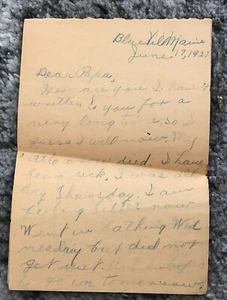 Blue Hill Maine
June 17, 1921
Dear Papa,
How are you I have n't
written to you for a
very long time so I
guess I will now. My
died. I have
been sick, I was
day Thursday. I am
feeling better now
Went in bathing Wed
nesday but did not
get wet.
go in tomorrow.